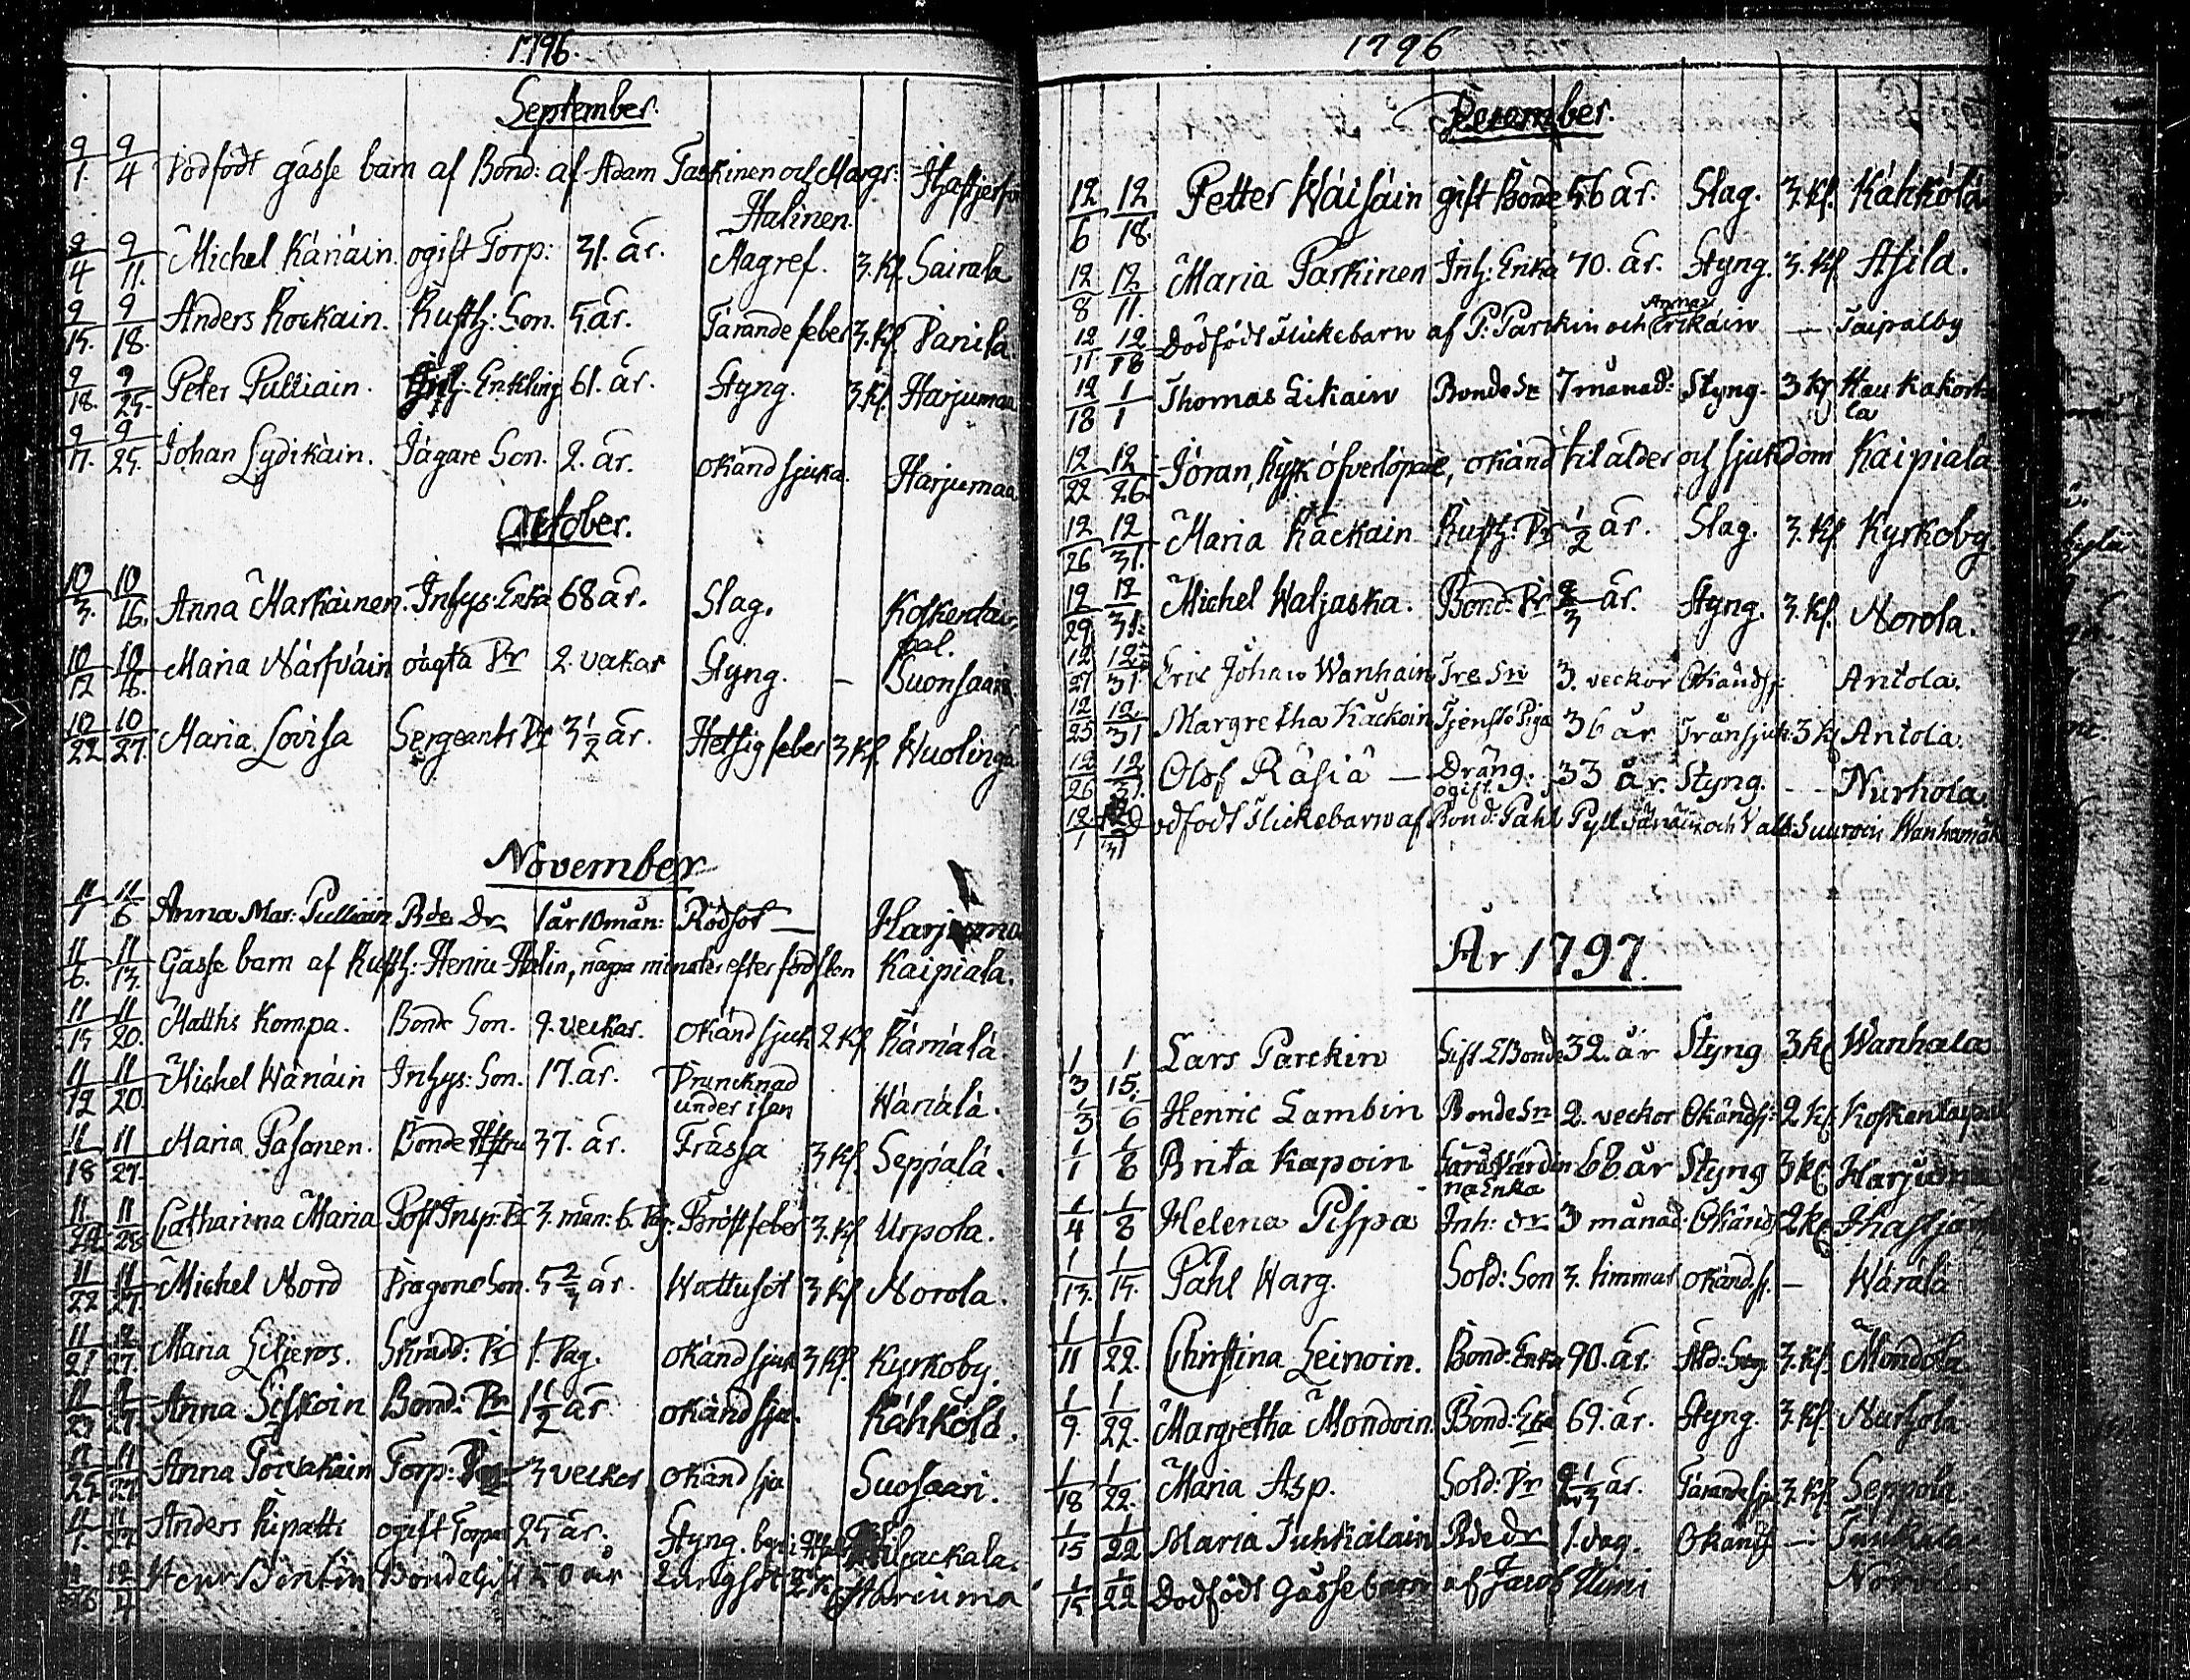 1796.
September.
9/1. 9/4 Dödfödt gåsse barn af Bond: af Adam Taskinen och Margr:
Halinen.
9/4 9/11. Michel Känäin. ogift Torp: 31. år. Magref. 3. Kl. Sairala
9/15. 9/18. Anders Kockain. Rusth: Son. 5. år. Tärande feber 3. Kl. Panila
9/18. 9/25. Peter Pulliain. Enkling 61. år. Styng. 3. Kl. Harjumaa
9/17. 9/25. Johan Lydikäin. Jägare Son. 2. år. okänd sjuka. Harjumaa
October.
10/3. 10/16. Anna Markäinen. Inhys: Enka 68 år. Slag. Koskentai
pal.
10/12 10/16. Maria Närfväin oägta Dr 2. veckor Styng. – Suonsaari
10/22 10/27. Maria Lovisa Sergeants Dr 3 1/2 år. Hetsig feber 3 Kl. Wuolinga
November
11/1 11/6. Anna Mar: Pulliain Bde Dr 1 år 10 mån: Rödsot —
11/6. 11/13. Gåsse barn af Rusth: Henric Halin, några minuter efter födslen Kaipiala.
11/15 11/20. Matths Kompa. Bonde Son. 9. veckor. okänd sjuk 2 Kl. Rämälä
11/12 11/20. Michel Wänäin Inhys: Son. 17. år. Druncknad
under isen Wärälä.
11/18 11/27. Maria Pasonen. Bonde Hustru 37. år. Frässa 3 Kl. Seppälä.
11/22 11/28 Catharina Maria Post Insp: Dr 3. mån: 6. Dag. Bröstfeber 3. Kl Urpola.
11/22 11/27. Michel Nord Dragone Son. 5 2/3 år. Wattusot 3 Kl Norola.
11/21 11/27. Maria Lilieros. Skrädd: Dr 1. Dag. okänd sjuk 3 Kl. Kyrkoby.
11/23 11/27. Anna Siskoin Bond: Dr 1 1/2 år okänd sju. Kähkölä.
11/25 11/27 Anna Torvakain Torp: 3 veckor okänd sju Suosaari.
Anders Ripatti ogift Torpar 25 år. Styng.
11/26 12/4 Henr Bentin Bonde Gift 50 år Lungsot 2 K Hariuma
1796
December.
12/6 12/18. Petter Wäisäin gift Bonde 56 år. Slag. 3. Kl. Kähkölä
12/8 12/11. Maria Parkinen Inh: Enka 70. år. Styng. 3. Kl Asila.
Anna
12/11 12/18 Dödfödt Flickebarn af P: Parckin och Erikäin — Taipalby
12/18 1/1 Thomas Likain Bonde Sn 7 månad: Styng. 3 Kl Hau kakorh
la
12/22 12/26. Jöran, Rysk öfverlöpare, okänd til ålder och sjukdom Kaipiala
12/26 12/31. Maria Käckäin Rusth: Dr 1/2 år. Slag. 3. Kl Kyrkoby.
12/29 12/31. Michel Waljaska. Bond: Dr 2/3 år. Styng. 3. Kl. Norola.
12/27 12/31 Eric Johan Wanhain Tre Sn 3. veckor Okänd sj: Antola.
12/25 12/31 Margretha Käckoin Tjenste Piga 36 år Trånsjuk: 3 Kl Antola.
12/26 12/31. Olof Räsiä — Dräng. 33 år. Styng. - - Nurhola.
ogift
12/1 12/31 Dödfödt Flickebarn af Bond: Pahl Pylkänäin och Valb: Suuroin Wanhamäki
År 1797.
1/3 1/15. Lars Parckin Gift Bonde 32. år Styng 3 Kl Wanhala
1/3 1/6 Henric Lambin Bonde Sn 2. veckor Okänd sj: 2 Kl. Koskentaipal
1/1 1/8 Brita Kapoin 66 år Styng 3 Kl Harjuma
na Enka
1/4 1/8 Helena Pispa Inh: dr 3 månad: Okänd 2 Kl
1/13. 1/15. Pahl Warg. Sold: Son 3. timmar okänd sj. — Wärälä
1/11 1/22. Christina Leinoin. Bond: Enka 90. år. 3. Kl. Mondola
1/9. 1/22. Margretha Mondoin. Bond: Eka 69. år. Styng. 3. Kl. Nurhola
1/18 1/22. Maria Asp. Sold: Dr år. Tärande sju 3. Kl. Seppälä
1/15 1/22. Maria Juhkalain Bde dr 1. dag. Okänd —
1/15 1/22 Dödfödt Gåsse barn af Jacob Himi